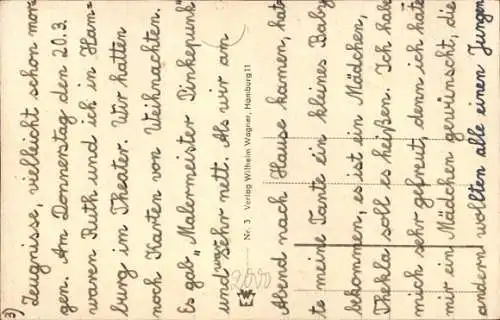 3)
Zeugnisse, vielleicht schon mor-
gen. Am Donnerstag den 20.3.
waren Ruth und ich in Ham-
burg im Theater. Wir hatten
noch Karten von Weihnachten.
Es gab „Malermeister Pinkepunk“
und war sehr nett. Als wir am
Nr. 3 Verlag Wilhelm Wagner, Hamburg 11
Abend nach Hause kamen, hat-
te meine Tante ein kleines Baby
bekommen, es ist ein Mädchen,
Thekla soll es heißen. Ich habe
mich sehr gefreut, denn ich hate
mir ein Mädchen gewünscht, die
andern wollten alle einen Jungen